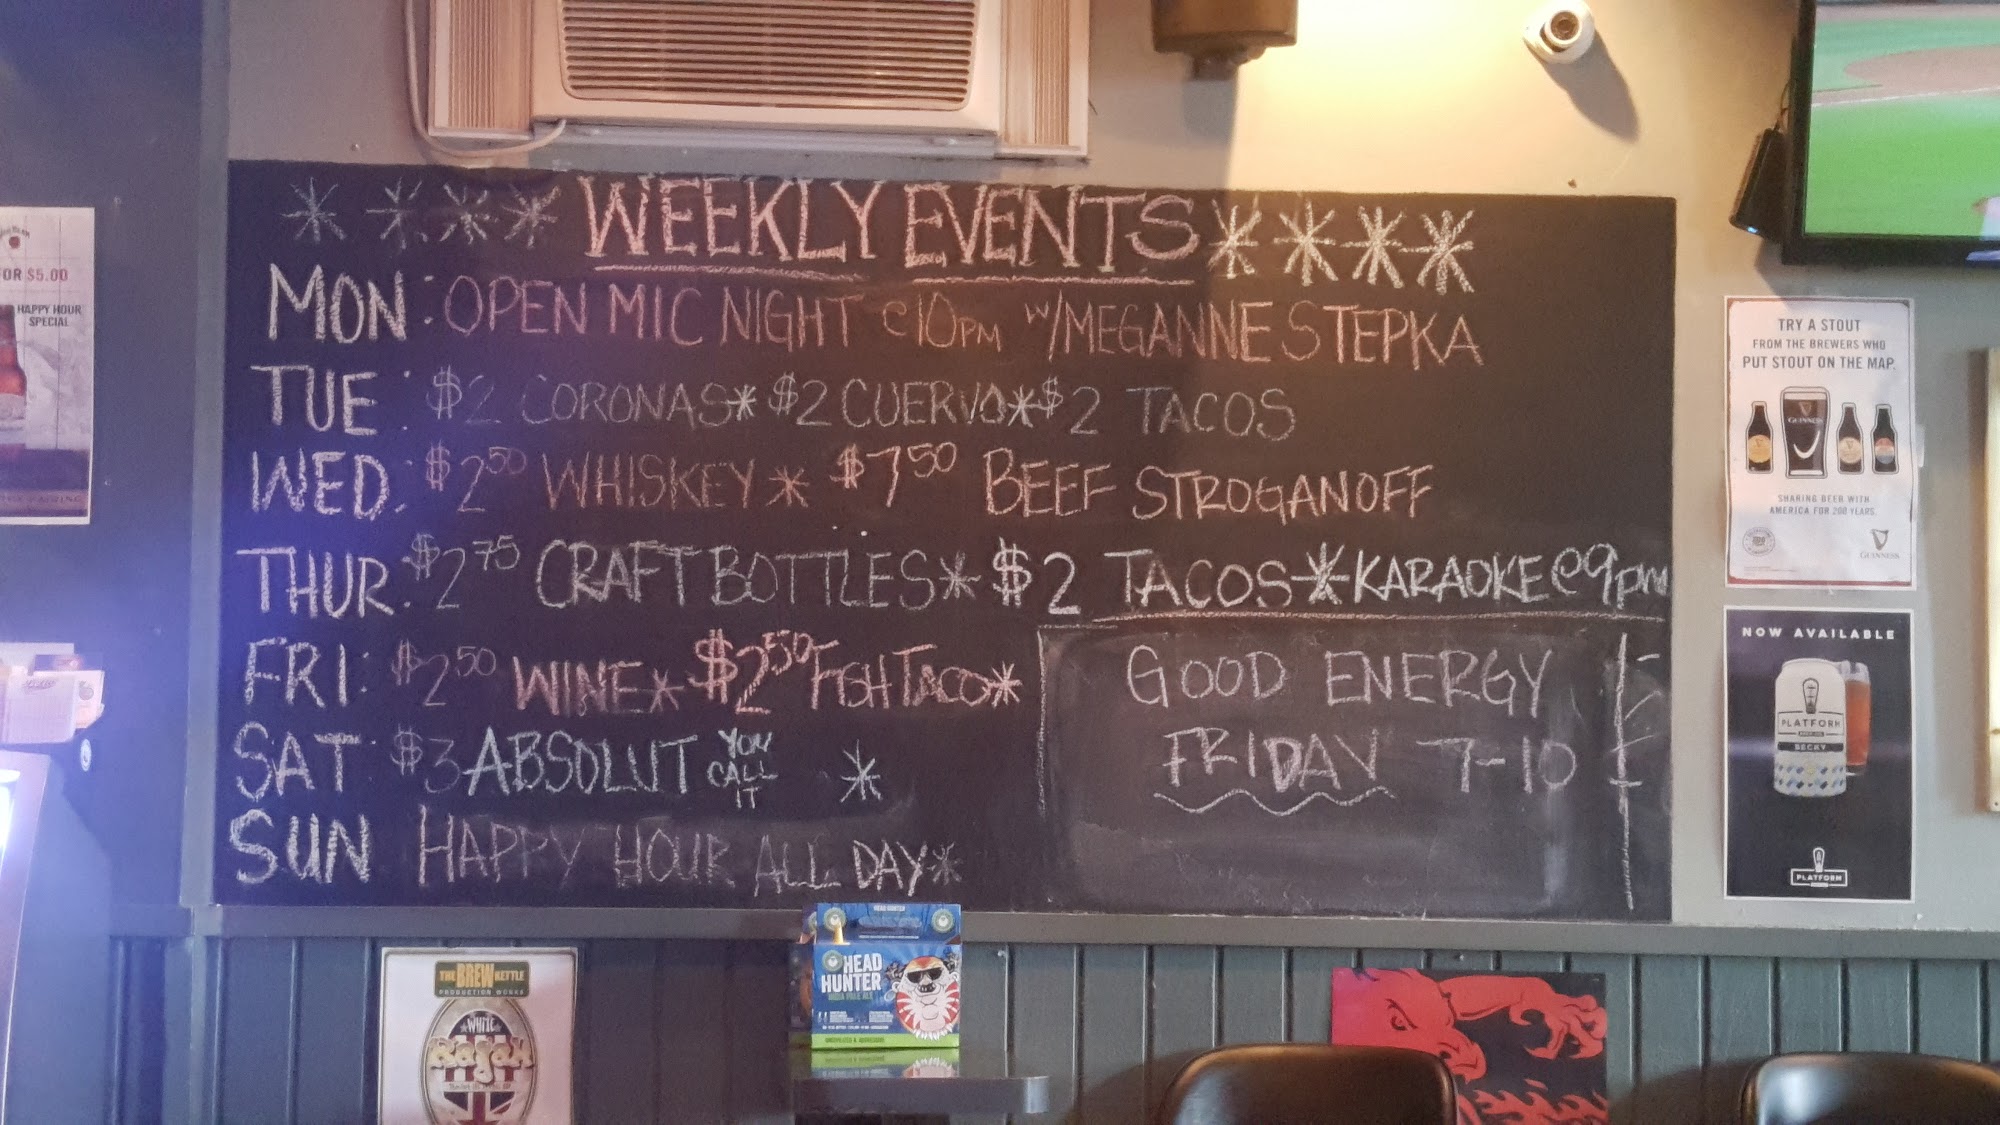 WEEKLY EVENTS
MON: OPEN MIC NIGHT @10PM W/MEGANNE STEPKA
TUE: $2 CORONAS* $2 CUERVO* $2 TACOS
WED: $2.50 WHISKEY* $7.50 BEEF STROGANOFF
THUR: $2.75 CRAFT BOTTLES* $2 TACOS* KARAOKE @9pm
FRI: $2.50 WINE* $2.50 FISH TACO*
SAT: $3 ABSOLUT YOU CALL IT *
SUN HAPPY HOUR ALL DAY*
GOOD ENERGY
FRIDAY 7-10
FOR $5.00
HAPPY HOUR
SPECIAL
TRY A STOUT
FROM THE BREWERS WHO
PUT STOUT ON THE MAP.
GUINNESS
SHARING BEER WITH
AMERICA FOR 200 YEARS.
GUINNESS
NOW AVAILABLE
PLATFORM
BECKY
PLATFORM
THE BREW KETTLE
PRODUCTION WORKS
WHITE
Rajah
HEAD HUNTER
HEAD
HUNTER
INDIA PALE ALE